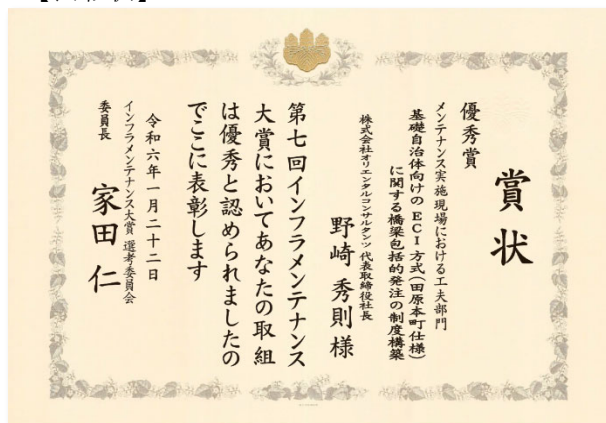 賞状
優秀賞
メンテナンス実施現場における工夫部門
基礎自治体向けのECI方式(田原本町仕様)
に関する橋梁包括的発注の制度構築
株式会社オリエンタルコンサルタンツ 代表取締役社長
野崎 秀則 様
第七回インフラメンテナンス
大賞においてあなたの取組
は優秀と認められましたの
でここに表彰します
令和六年一月二十二日
インフラメンテナンス大賞 選考委員会
委員長 家田 仁